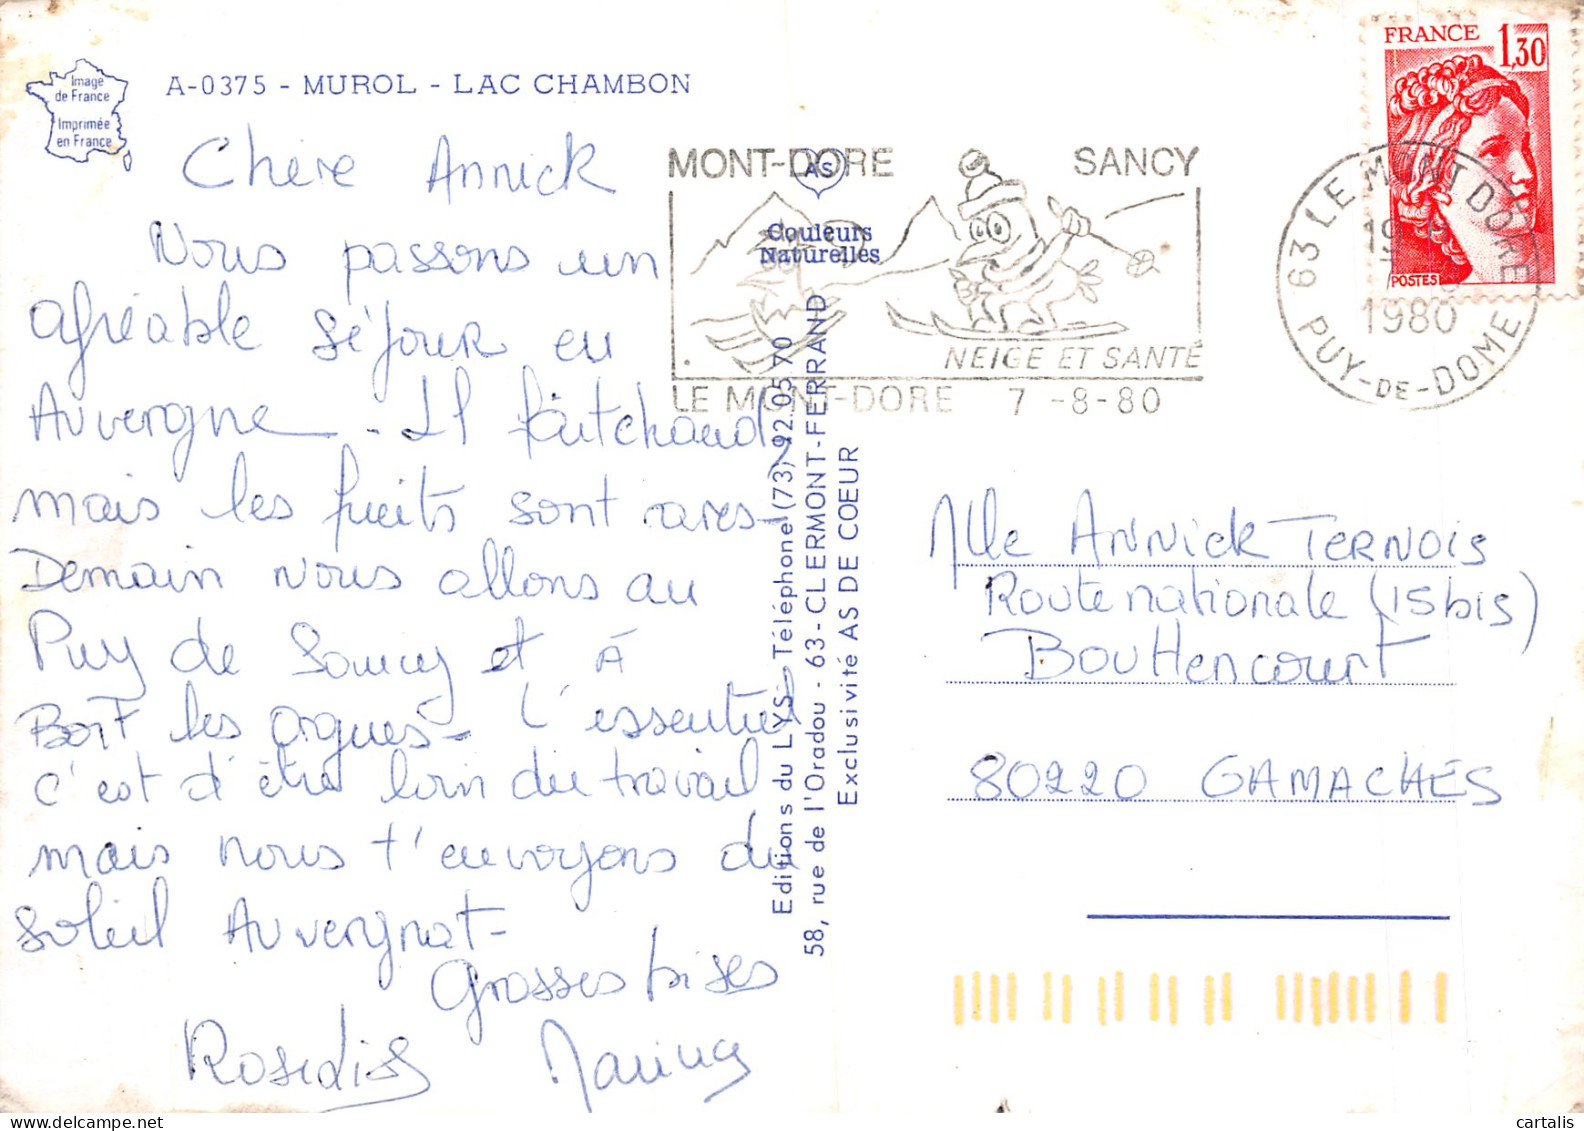 Image
de France
Imprimée
en France
A-0375 - MUROL - LAC CHAMBON
Chère Annick
Nous passons un
agréable séjour en
Auvergne - Il fait chaud,
mais les fruits sont rares -
Demain nous allons au
Puy de Sancy et à
Bort les orgues - L'essentiel
c'est d'être loin du travail
mais nous t'envoyons du
soleil Auvergnat -
Grosses bises
AS
Couleurs
Naturelles
Editions du LYS - Téléphone (73) 92.05.70
58, rue de l'Oradou - 63 - CLERMONT-FERRAND
Exclusivité AS DE COEUR
MONT-DORE SANCY
NEIGE ET SANTÉ
LE MONT-DORE 7 -8-80
FRANCE 1,30
POSTES
63 LE MONT DORE
1980
PUY-DE-DOME
Mlle ANNick TERNOis
Route nationale (15bis)
Bouttencourt
80220 GAMACHES
cartalis